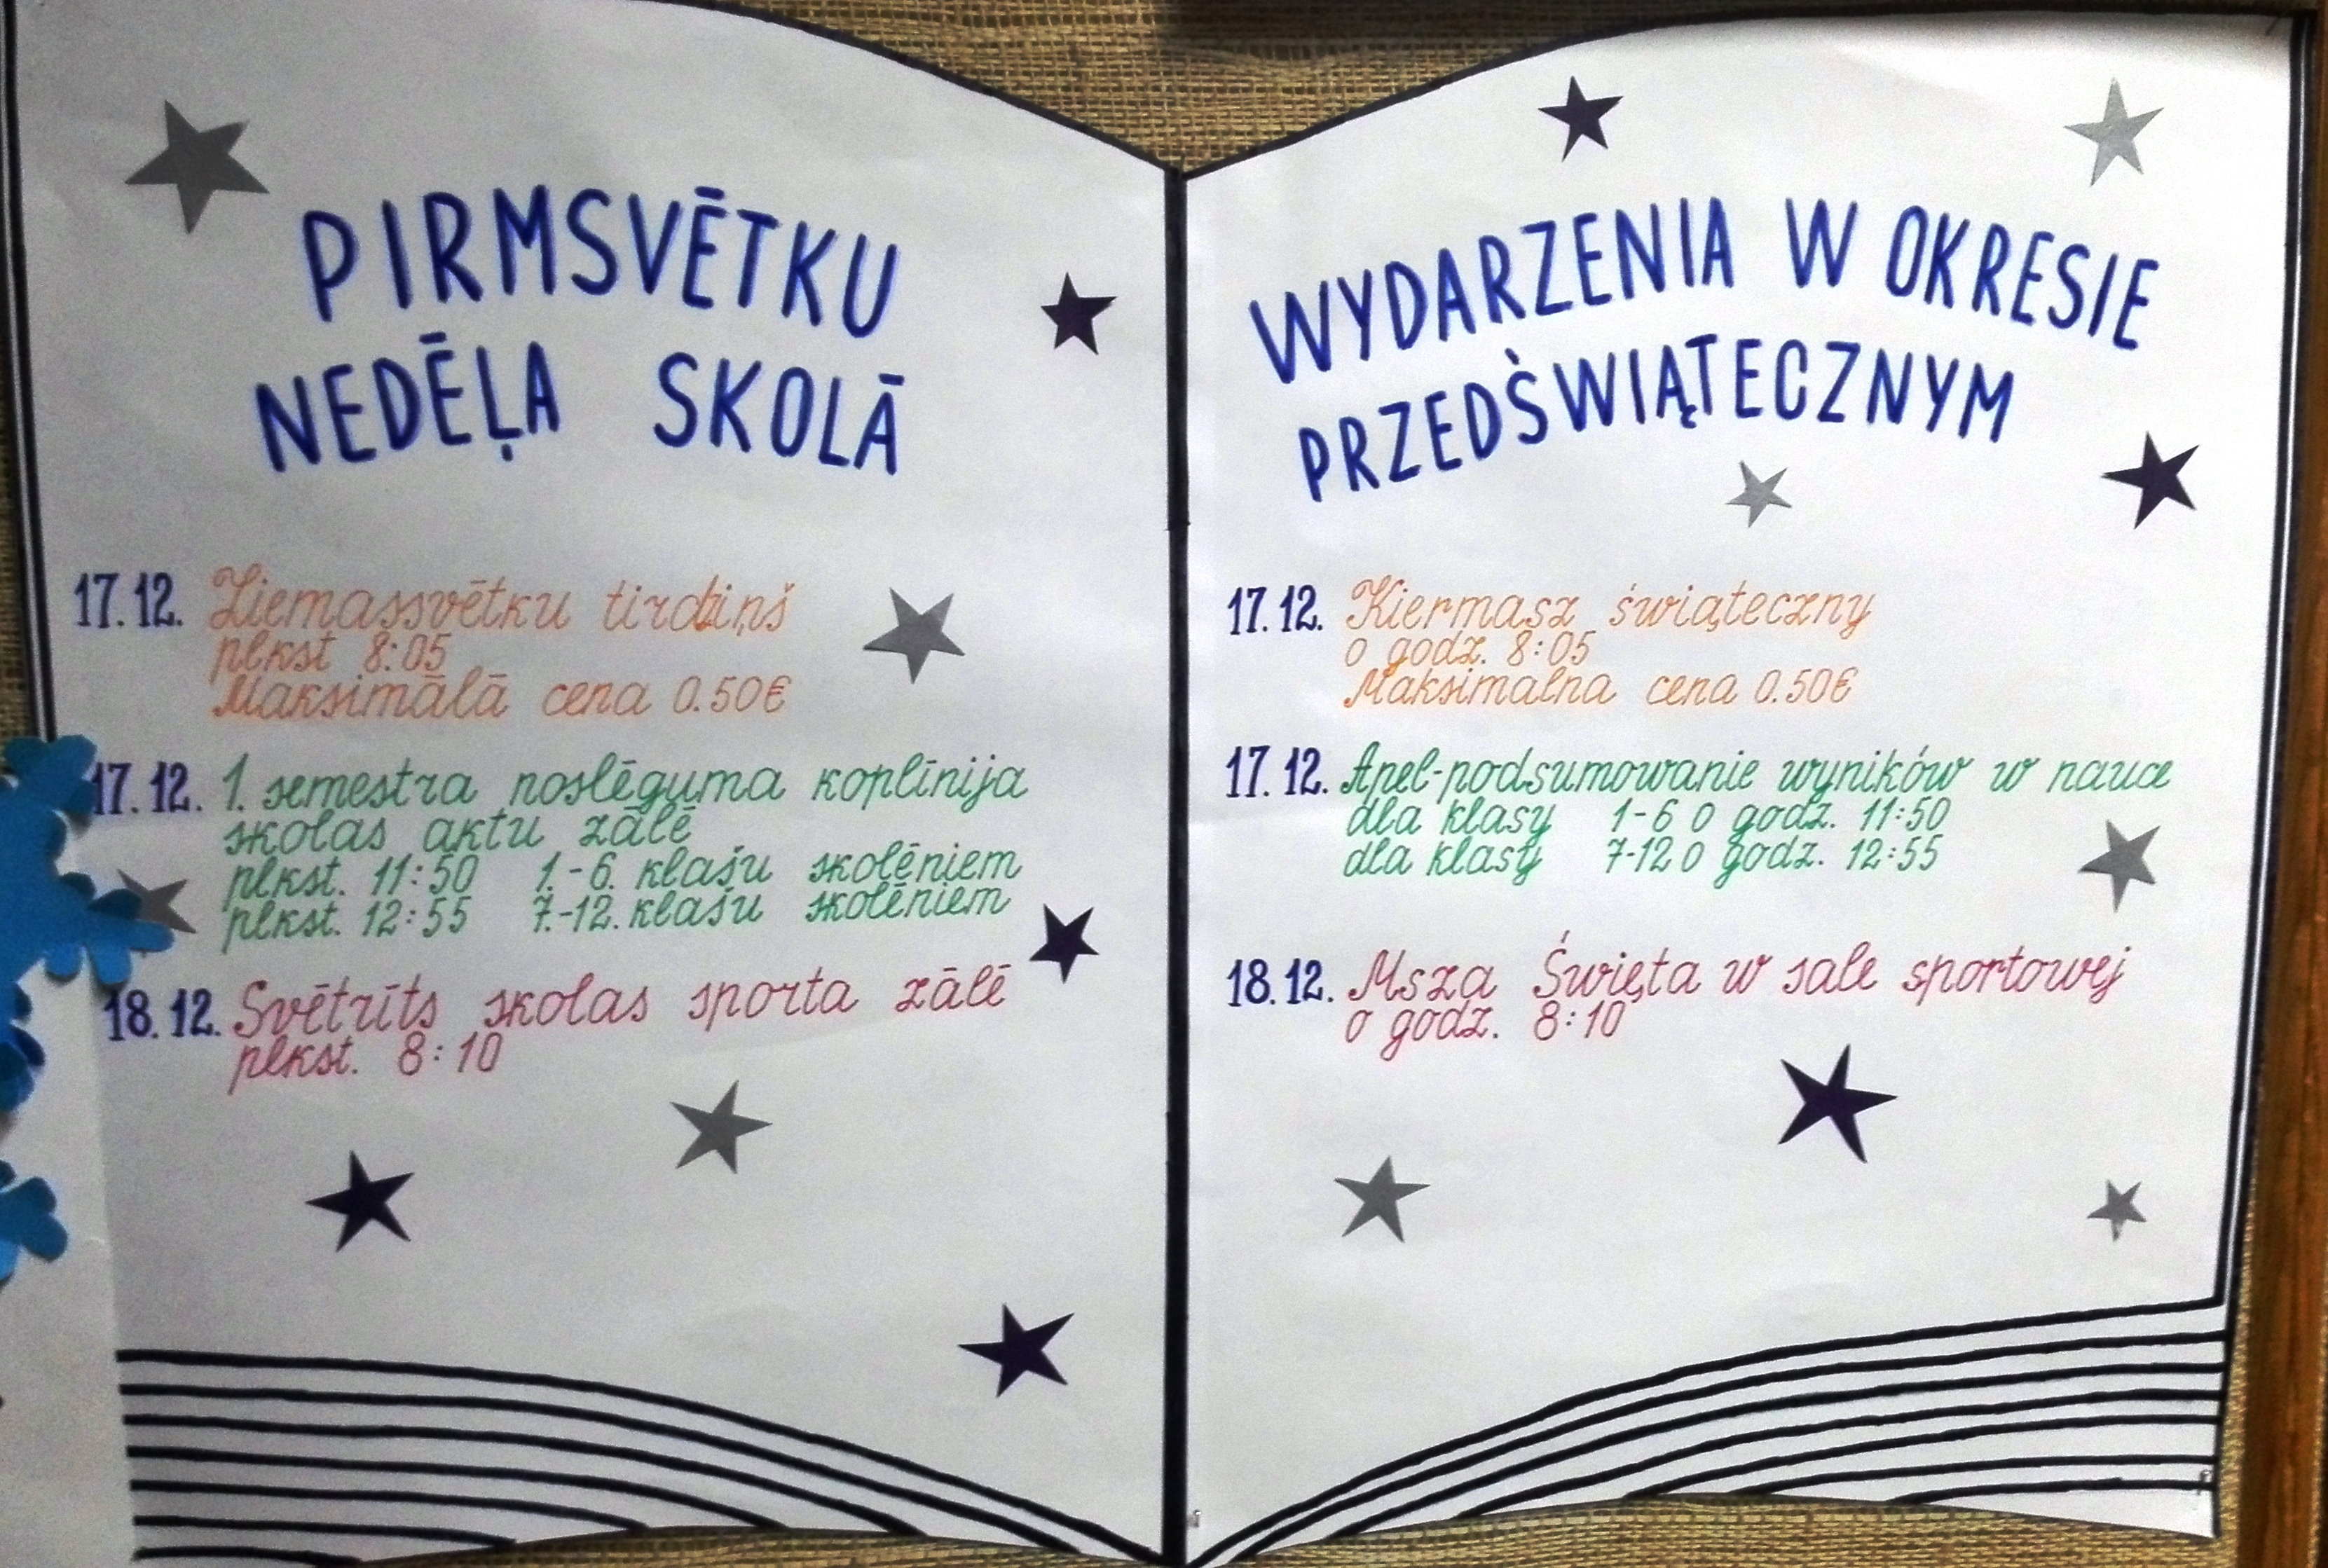 PIRMSVĒTKU
NEDĒĻA SKOLĀ
17.12. Ziemassvētku tirdziņš
plkst 8:05
Maksimālā cena 0.50€
17.12. 1. semestra noslēguma koplīnija
skolas aktu zālē
plkst. 11:50 1.-6. klašu skolēniem
plkst. 12:55 7.-12. klašu skolēniem
18.12. Svētrīts skolas sporta zālē
plkst. 8:10
WYDARZENIA W OKRESIE
PRZEDŚWIĄTECZNYM
17.12. Kiermasz świąteczny
o godz. 8:05
Maksimalna cena 0.50€
17.12. Apel-podsumowanie wyników w nauce
dla klasy 1-6 o godz. 11:50
dla klasy 7-12 o godz. 12:55
18.12. Msza Święta w sale sportowej
o godz. 8:10